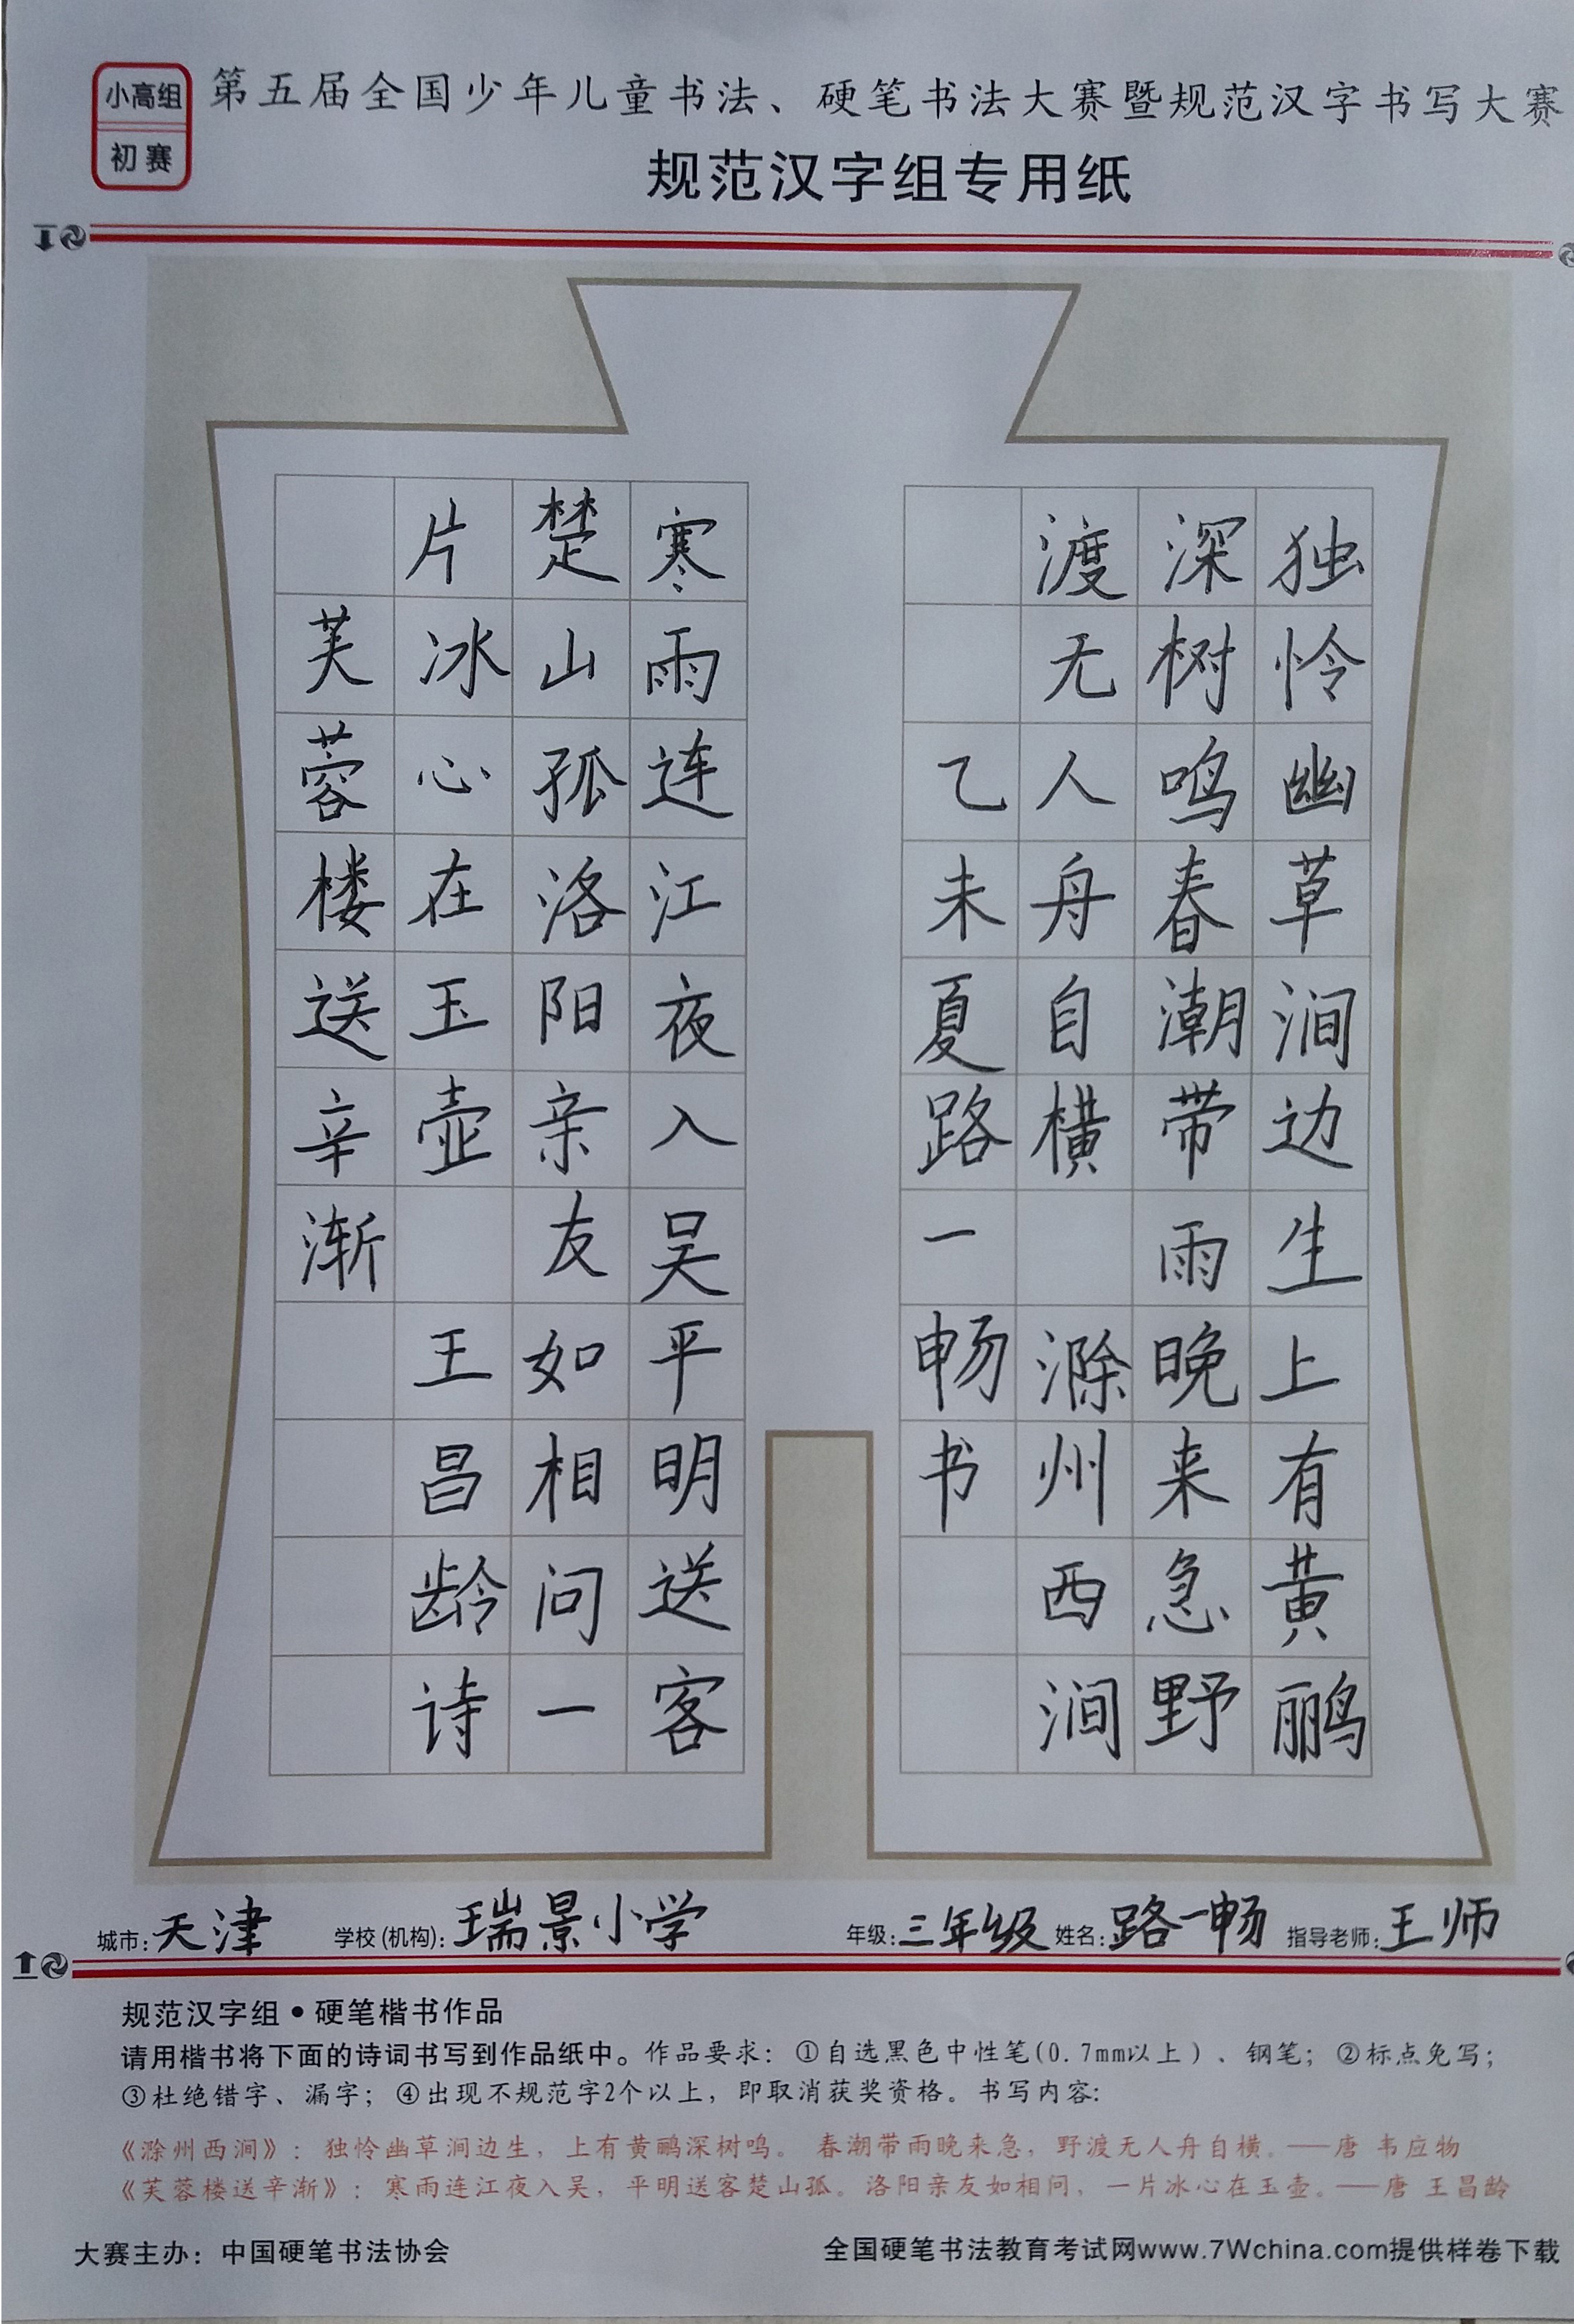 小高组
初赛
第五届全国少年儿童书法、硬笔书法大赛暨规范汉字书写大赛
规范汉字组专用纸
独怜幽草涧边生上有黄鹂
深树鸣春潮带雨晚来急野
渡无人舟自横 滁州西涧
乙未夏路一畅书
寒雨连江夜入吴平明送客
楚山孤洛阳亲友如相问一
片冰心在玉壶 王昌龄诗
芙蓉楼送辛渐
城市:天津 学校(机构):瑞景小学 年级:三年级 姓名:路一畅 指导老师:王师
规范汉字组•硬笔楷书作品
请用楷书将下面的诗词书写到作品纸中。作品要求：①自选黑色中性笔(0.7mm以上)、钢笔；②标点免写；
③杜绝错字、漏字；④出现不规范字2个以上，即取消获奖资格。书写内容:
《滁州西涧》：独怜幽草涧边生，上有黄鹂深树鸣。春潮带雨晚来急，野渡无人舟自横。——唐 韦应物
《芙蓉楼送辛渐》：寒雨连江夜入吴，平明送客楚山孤。洛阳亲友如相问，一片冰心在玉壶。——唐 王昌龄
大赛主办：中国硬笔书法协会 全国硬笔书法教育考试网www.7Wchina.com提供样卷下载